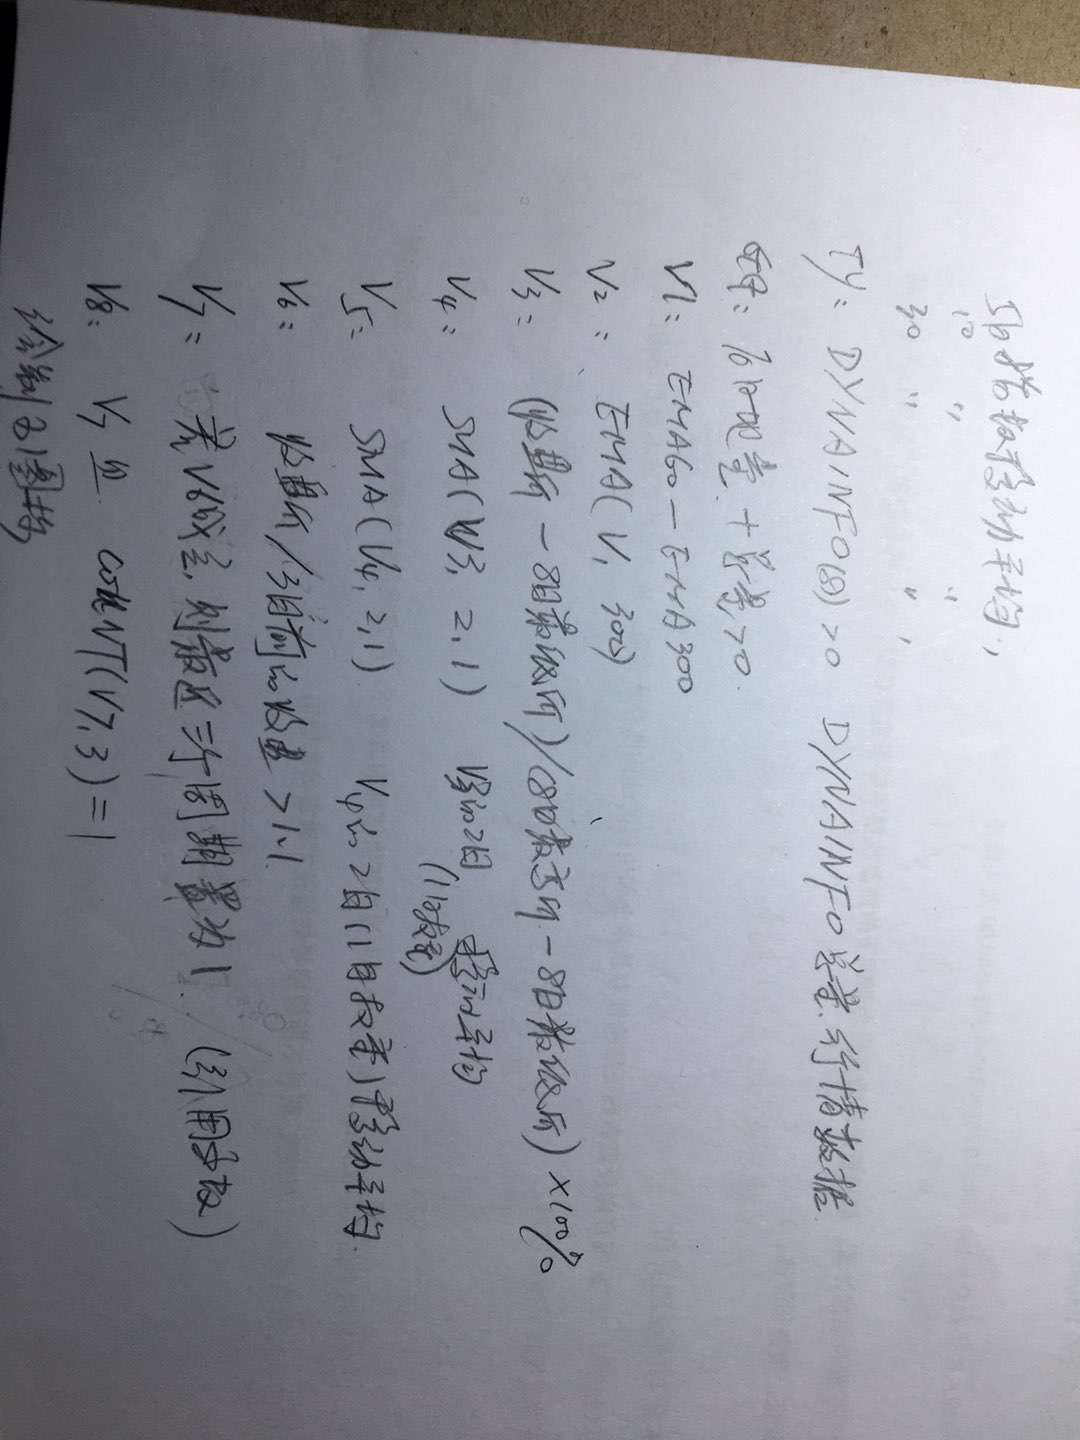 5日指数移动平均,
10 〃 〃
30 〃 〃 ,
TY: DYNAINFO(8)>0 DYNAINFO 总量 行情数据
: % 量 + 总量>0.
V1: EMA60 — EMA300
V2: EMA(V1 300)
V3: (收盘价 - 8日最低价)/(8日最高价 - 8日最低价) ×100%
V4: SMA(V3, 2, 1) V3的2日 移动平均
(1日权重)
V5: SMA(V4, 2, 1) V4的2日(1日权重)移动平均.
V6: 收盘价/3日前的收盘 >1.1.
V7: 若V6成立,则最近三个周期置为1. (引用函数)
V8: V7且 COUNT(V7,3)=1
绘制 图标